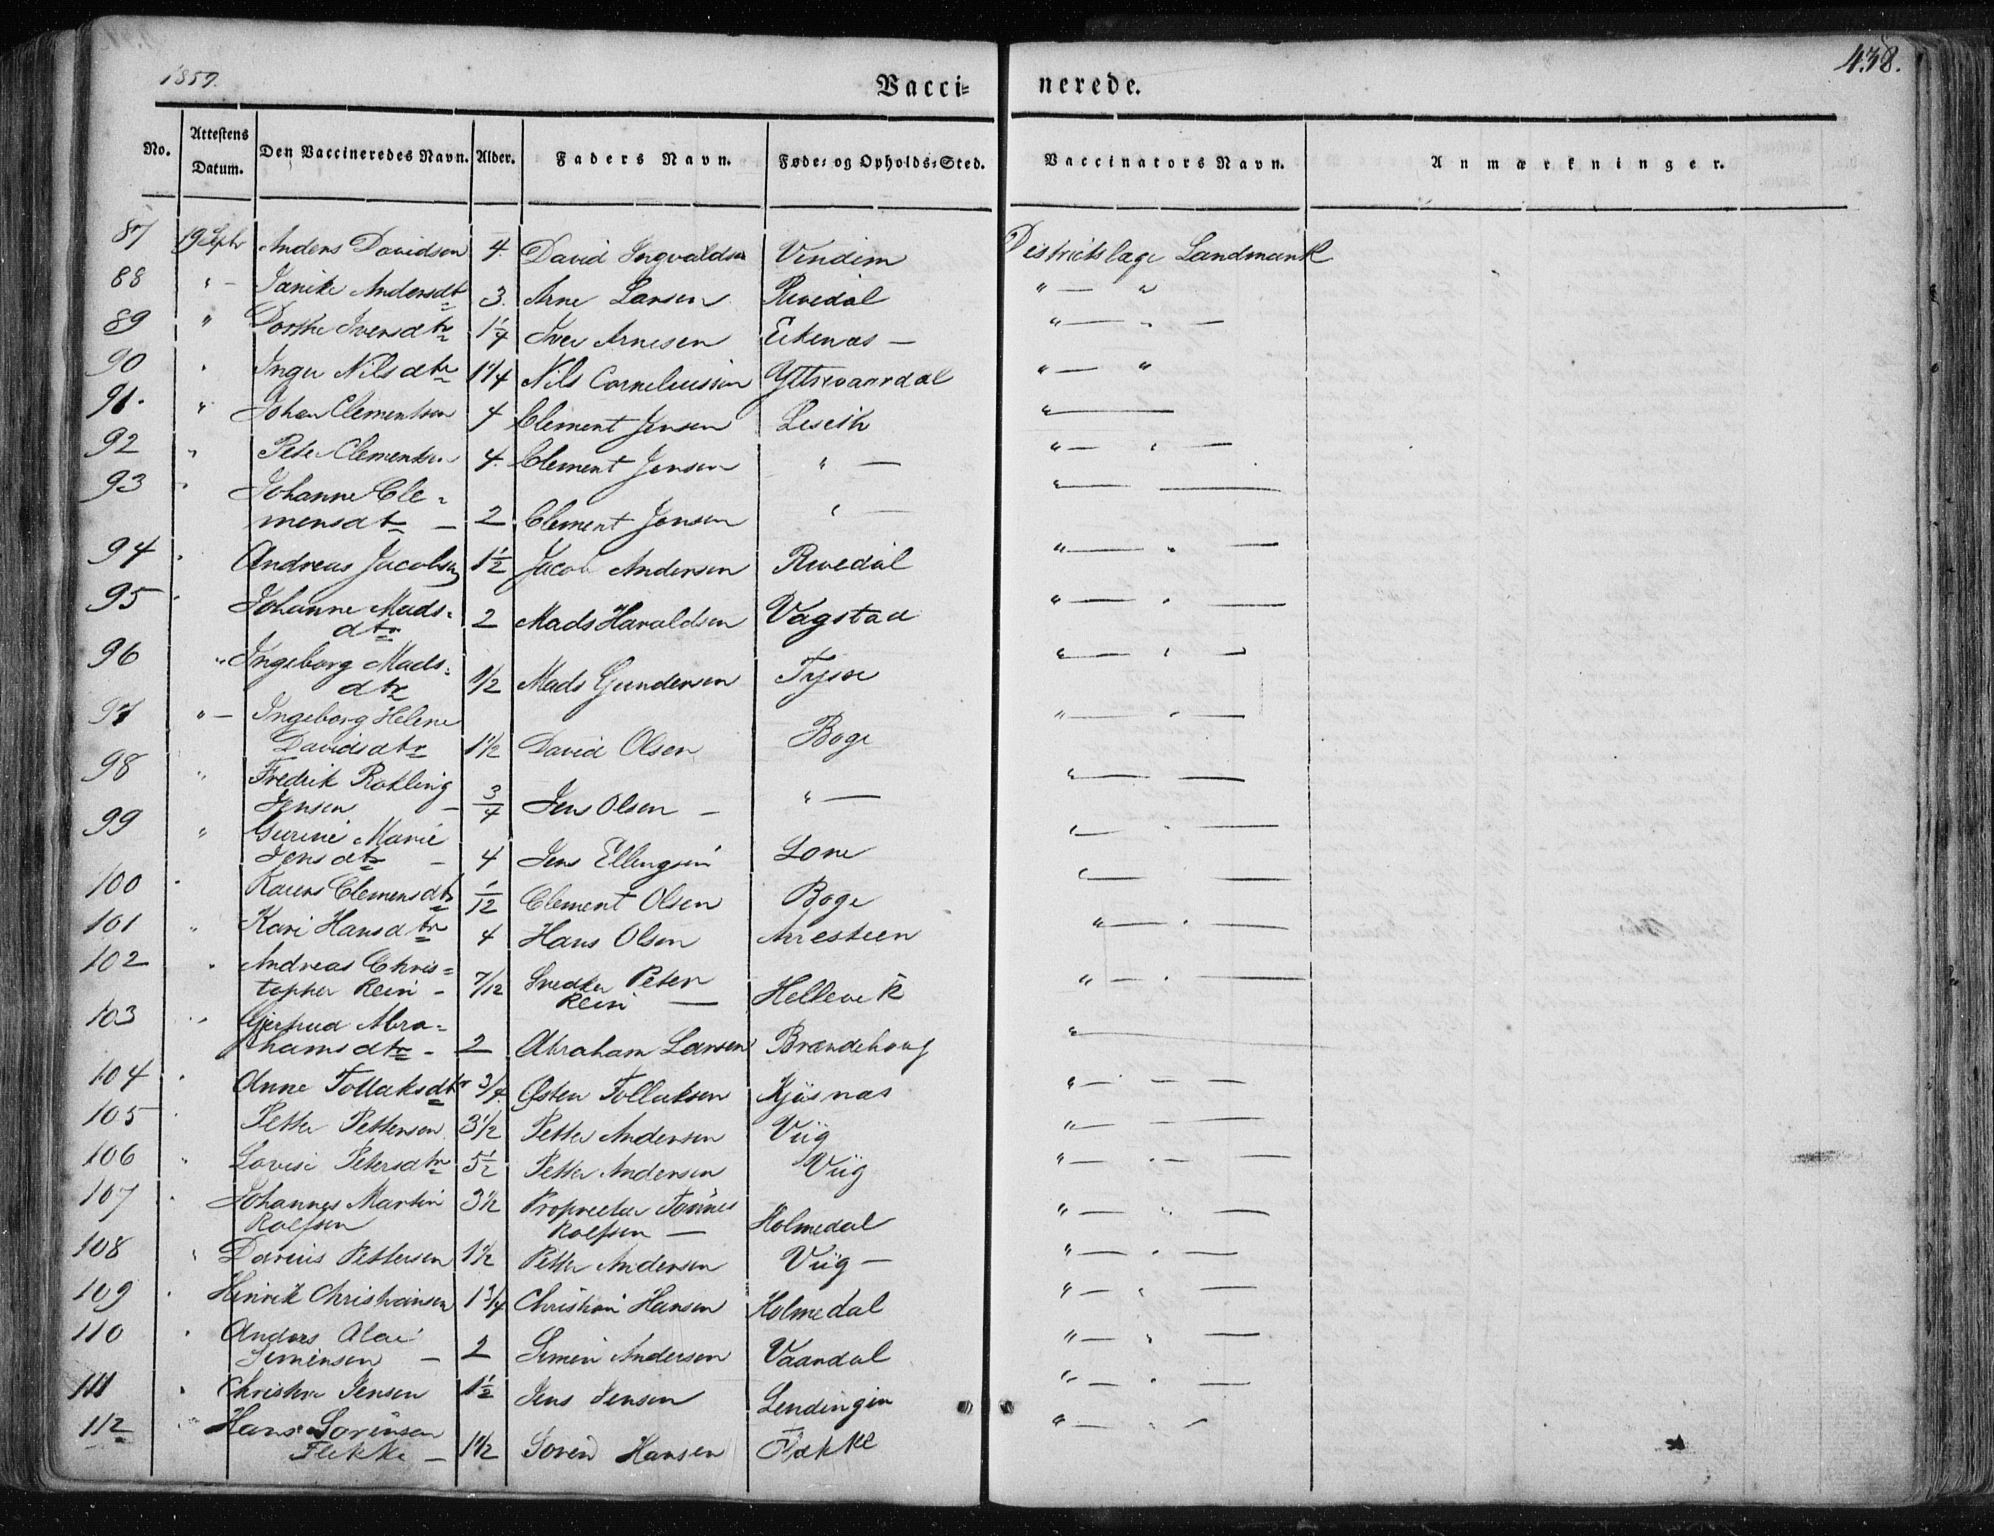 1859.
438.
Vacci= nerede.
No. Attestens Datum. Den Vaccineredes Navn. Alder. Faders Navn. Føde= og Opholds=Sted. Vaccinators Navn. Anmærkninger.
87 19 Septr Anders Davidson 4. David Ingvaldsen Vindim Districtslæge Landmark
88 " — Janike Andersdtr 3. Arne Larsen Revedal " — "
89 " Dorthe Iversdtr 1¼ Iver Arnesen Eikenæs — " — " —
90 " Inger Nilsdtr 1¼ Nils Corneliussen Yttrevaardal " — "
91. " Johan Clementsen 4 Clement Jensen Leseth " —
92 " Peter Clementsen 4. Clement Jensen " — " — " —
93 " Johanne Cle=
mensdtr — 2 Clement Jensen " — " — —
94 " Andreas Jacobsen 1½ Jacob Andersen Revedal " — " —
95 " Johanne Mads=
dtr 2 Mads Haraldsen Vagstad " — " —
96 " Ingeborg Mads=
dtr ½ Mads Gundersen Tysse " — " —
97 " — Ingeborg Helene
Davidsdtr 1½ David Olsen Boge " — " —
98 " Fredrik Rohling
Jensen — 3/4 Jens Olsen — " — " — —
99 " Gurine Marie
Jensdtr — 4 Jens Ellingsen Lone " — " —
100 " Karen Clemensdtr 1/12 Clement Olsen Boge " — " —
101 " Kari Hansdtr 4 Hans Olsen Arresteen " — " —
102 " Andreas Chris=
topher Rein — 7/12 Snedker Peter
Rein — Hellevik " — " —
103 " Gjertrud Abra=
hamsdtr — 2 Abraham Larsen Brandehoug " —
104 " Anne Tollaksdtr 3/4. Østen Tollaksen Kjøsnæs " — " —
105 " Petter Pettersen 3½ Petter Andersen Viig " — —
106 " Lovise Petersdtr 5½ Petter Andersen Viig " — " —
107 " Johannes Martin
Rolfsen 3½ Proprietær Tønnes
Rolfsen — Holmedal " — " —
108 " Darius Pettersen 1½ Petter Andersen Viig — " — " —
109 " Hinrik Christiansen 1¾ Christian Hansen Holmedal " — " —
110 " Anders Olai
Simensen — 2 Simen Andersen Vaardal " — " —
111 " Christen Jensen 1½ Jens Jensen Lendingen " — " —
112 " Hans Sørensen
Flekke — 1½ Søren Hansen Flekke " — " —